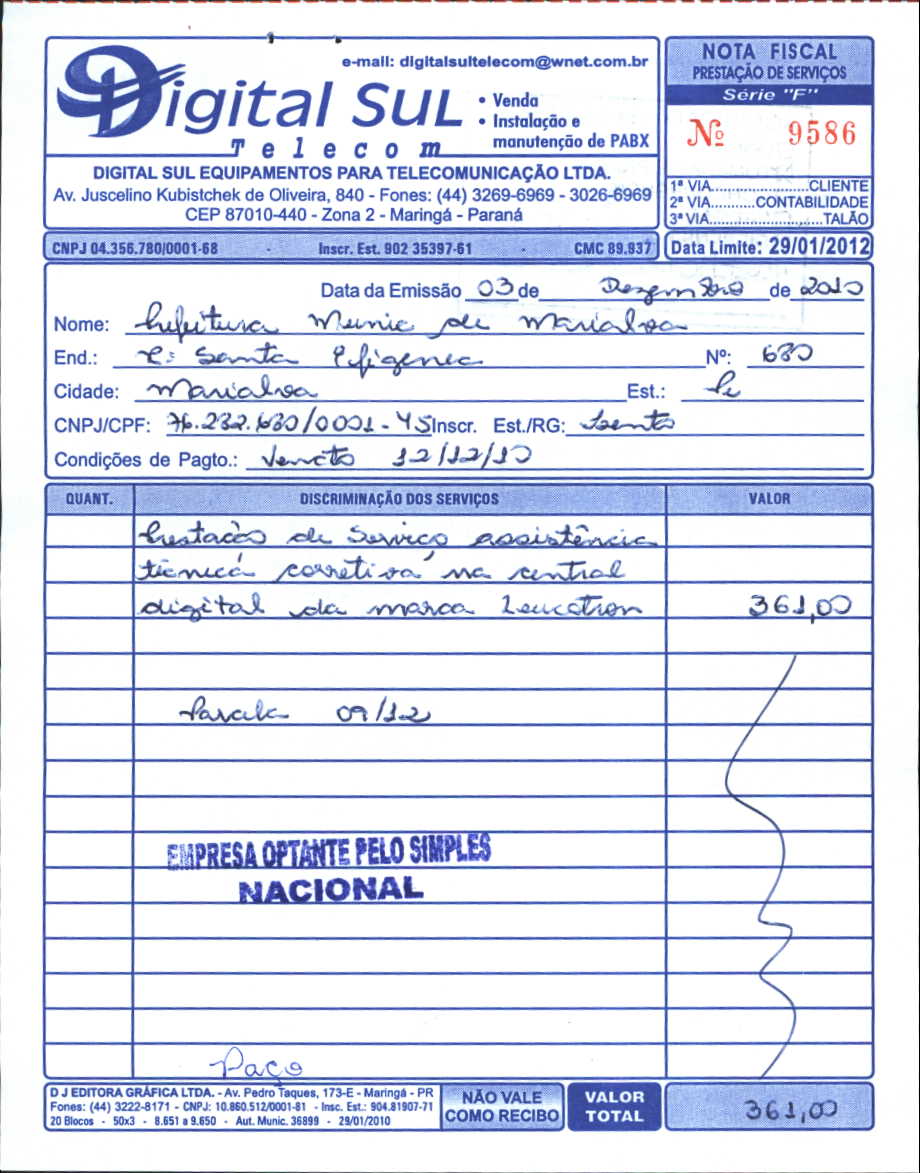 e-mail: digitalsultelecom@wnet.com.br
Digital Sul
Telecom
• Venda
• Instalação e
manutenção de PABX
DIGITAL SUL EQUIPAMENTOS PARA TELECOMUNICAÇÃO LTDA.
Av. Juscelino Kubistchek de Oliveira, 840 - Fones: (44) 3269-6969 - 3026-6969
CEP 87010-440 - Zona 2 - Maringá - Paraná
NOTA FISCAL
PRESTAÇÃO DE SERVIÇOS
Série "F"
Nº 9586
1ª VIA......................CLIENTE
2ª VIA..........CONTABILIDADE
3ª VIA.........................TALÃO
CNPJ 04.356.780/0001-68 - Inscr. Est. 902 35397-61 - CMC 89.937
Data Limite: 29/01/2012
Data da Emissão 03 de Dezembro de 2010
Nome: Prefeitura Munic de Marialva
End.: R: Santa Efigenea Nº: 680
Cidade: Marialva Est.: Pr
CNPJ/CPF: 76.282.680/0001-45 Inscr. Est./RG: Isento
Condições de Pagto.: Vencto 12/12/10
QUANT. DISCRIMINAÇÃO DOS SERVIÇOS VALOR
Prestação de Serviço assistência
técnica corretiva na central
digital da marca Leucotron 361,00
Parcela 09/12
EMPRESA OPTANTE PELO SIMPLES
NACIONAL
Paço
D J EDITORA GRÁFICA LTDA. - Av. Pedro Taques, 173-E - Maringá - PR
Fones: (44) 3222-8171 - CNPJ: 10.860.512/0001-81 - Insc. Est.: 904.81907-71
20 Blocos - 50x3 - 8.651 a 9.650 - Aut. Munic. 36899 - 29/01/2010
NÃO VALE
COMO RECIBO
VALOR
TOTAL
361,00